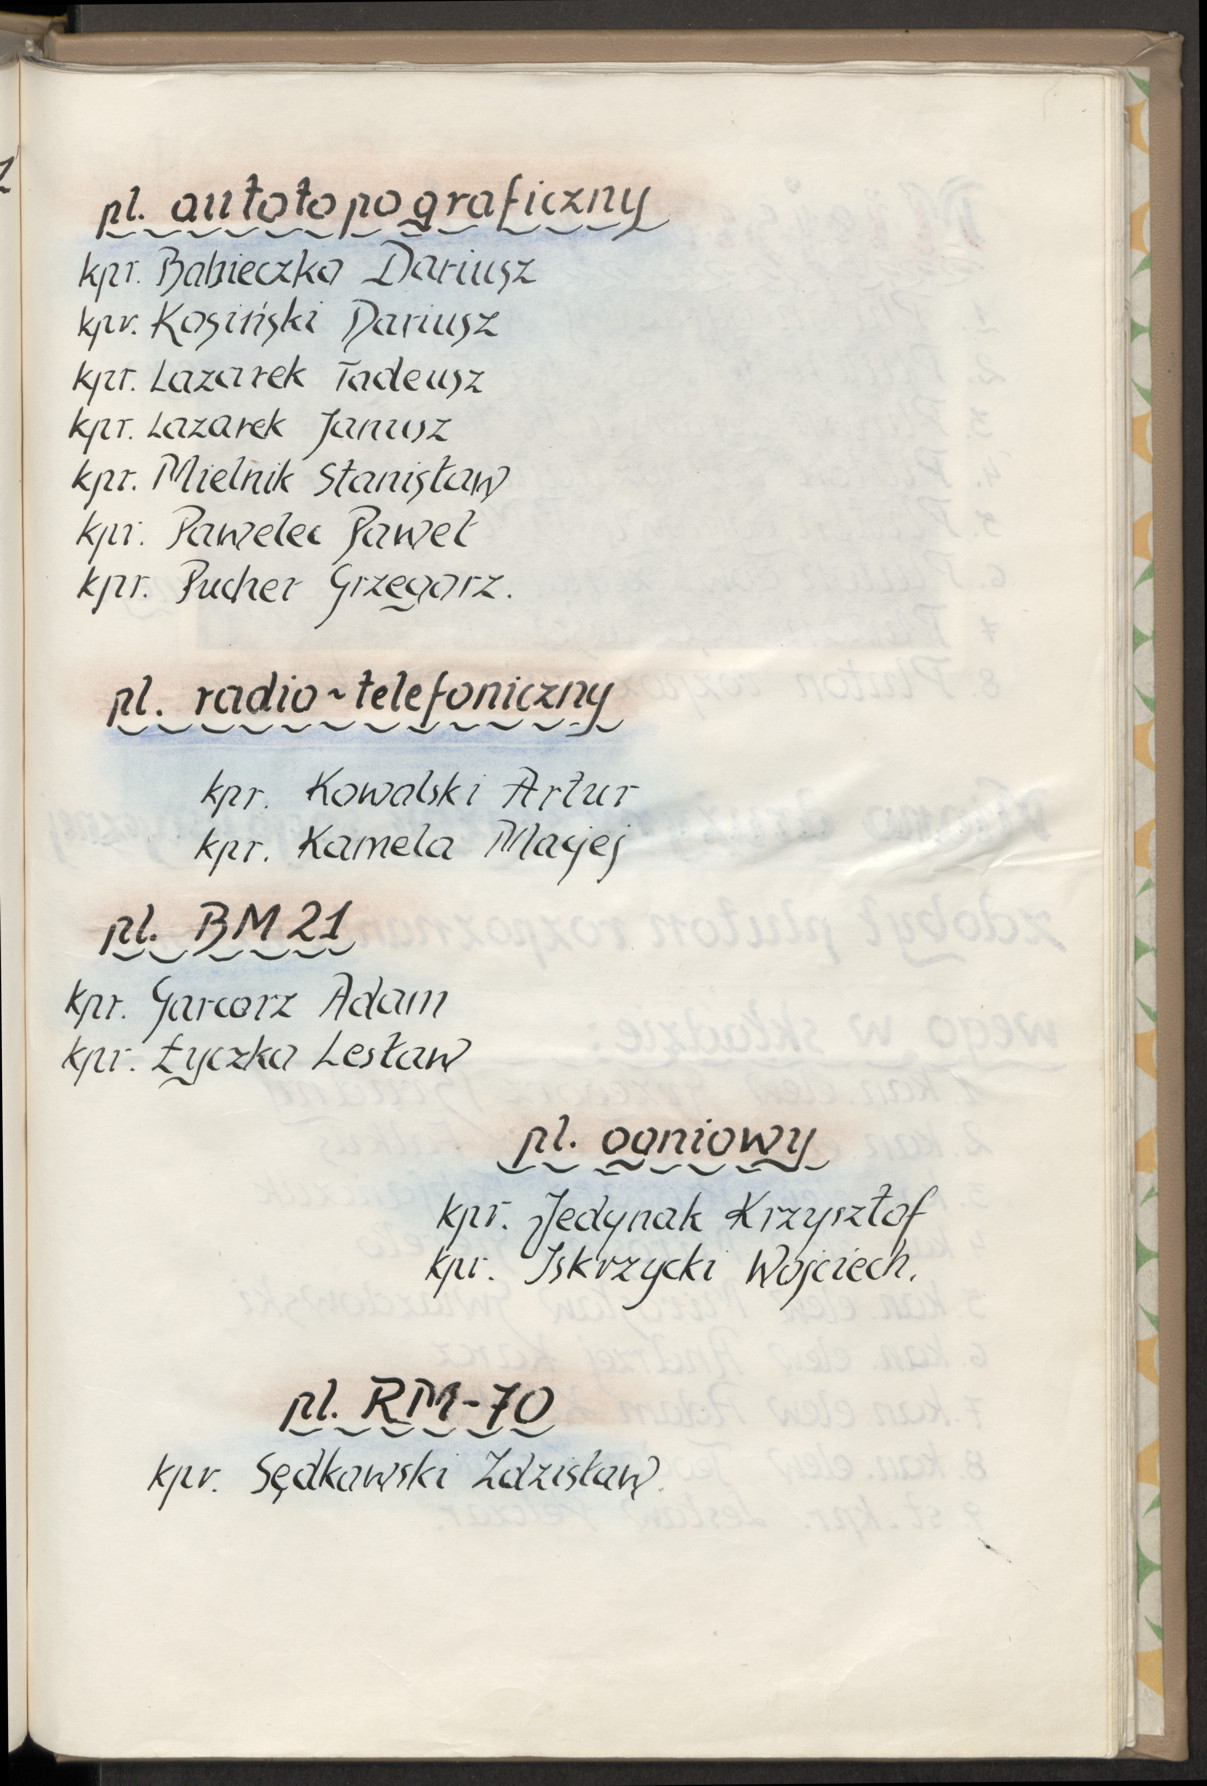 pl. autotopograficzny
kpr. Babieczko Dariusz
kpr. Kosiński Dariusz
kpr. Lazarek Tadeusz
kpr. Lazarek Janusz
kpr. Mielnik Stanisław
kpr. Pawelec Paweł
kpr. Pucher Grzegorz.
pl. radio-telefoniczny
kpr. Kowalski Artur
kpr. Kamela Maciej
pl. BM 21
kpr. Garcorz Adam
kpr. Łyczka Lesław
pl. ogniowy
kpr. Jedynak Krzysztof
kpr. Iskrzycki Wojciech.
pl. RM-70
kpr. Sędkowski Zdzisław.